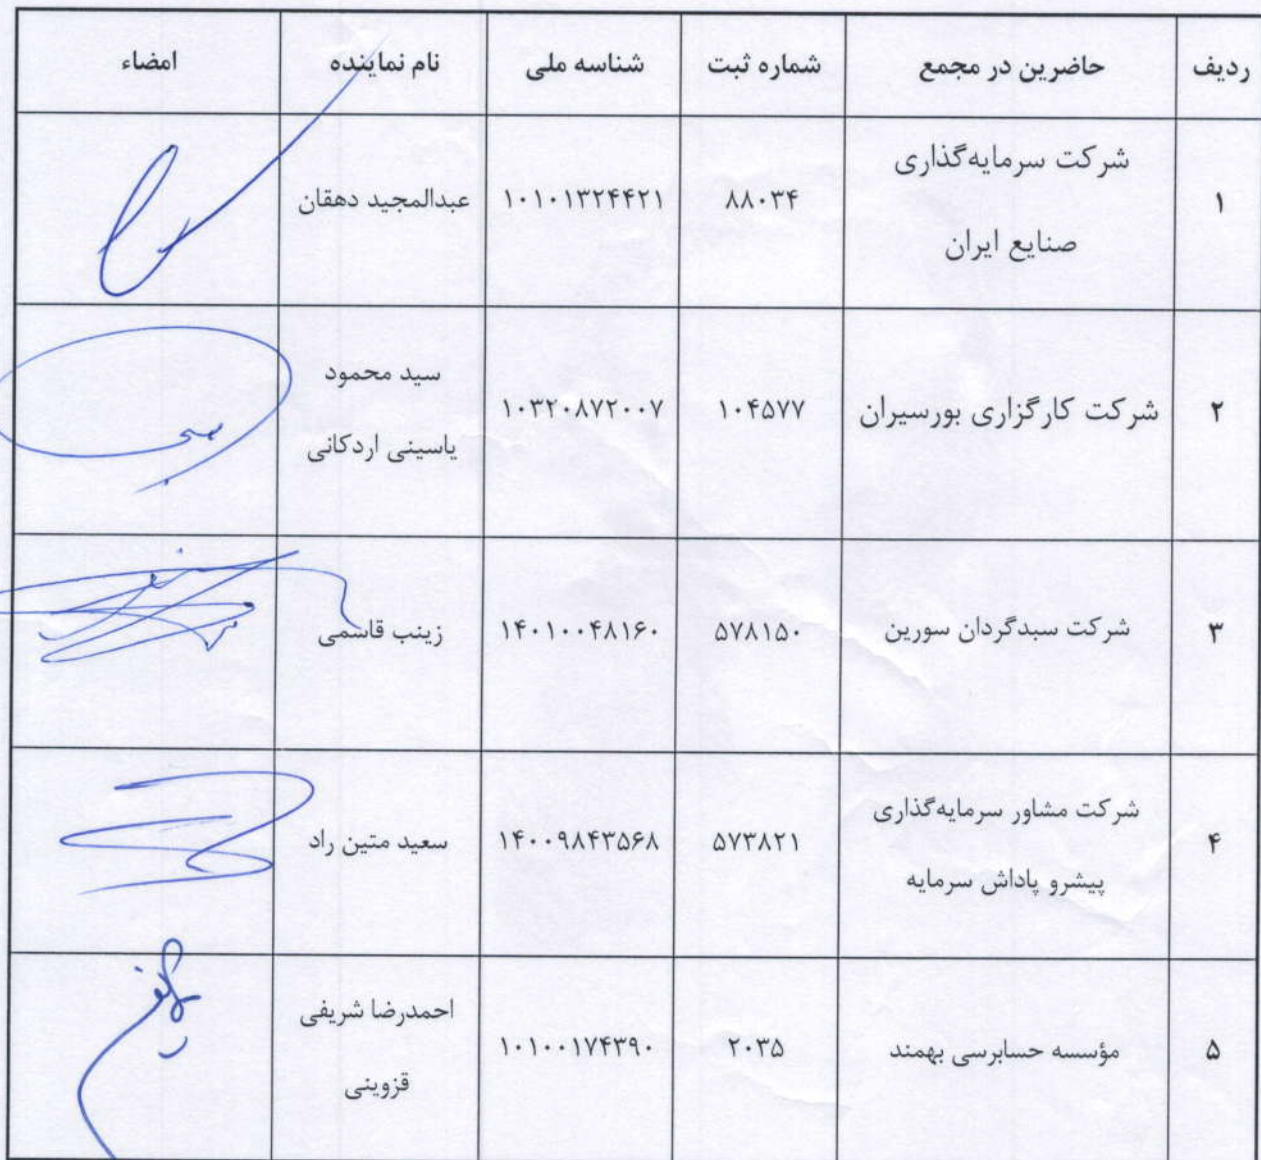 ردیف حاضرین در مجمع شماره ثبت شناسه ملی نام نماینده امضاء
۱ شرکت سرمایه‌گذاری صنایع ایران ۸۸۰۳۴ ۱۰۱۰۱۳۲۴۴۲۱ عبدالمجید دهقان
۲ شرکت کارگزاری بورسیران ۱۰۴۵۷۷ ۱۰۳۲۰۸۷۲۰۰۷ سید محمود یاسینی اردکانی
۳ شرکت سبدگردان سورین ۵۷۸۱۵۰ ۱۴۰۱۰۰۴۸۱۶۰ زینب قاسمی
۴ شرکت مشاور سرمایه‌گذاری پیشرو پاداش سرمایه ۵۷۳۸۲۱ ۱۴۰۰۹۸۴۳۵۶۸ سعید متین راد
۵ مؤسسه حسابرسی بهمند ۲۰۳۵ ۱۰۱۰۰۱۷۴۳۹۰ احمدرضا شریفی قزوینی